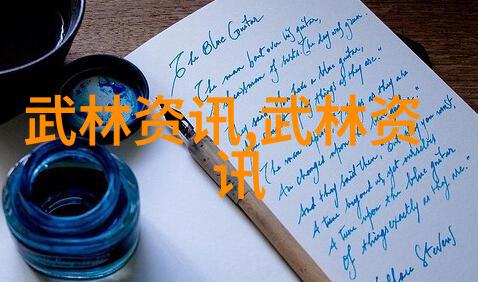 The Blue Guitar
The man bent over his guitar,
A shearsman of sorts. The day was green.
They said, "You have a blue guitar,
You do not play things as they are."
The man replied, "Things as they are
Are changed upon the blue guitar."
And they said then, "But play, you must,
A tune beyond us, yet ourselves,
A tune upon the blue guitar
Of things exactly as they are."
武林资讯,武林资
讯